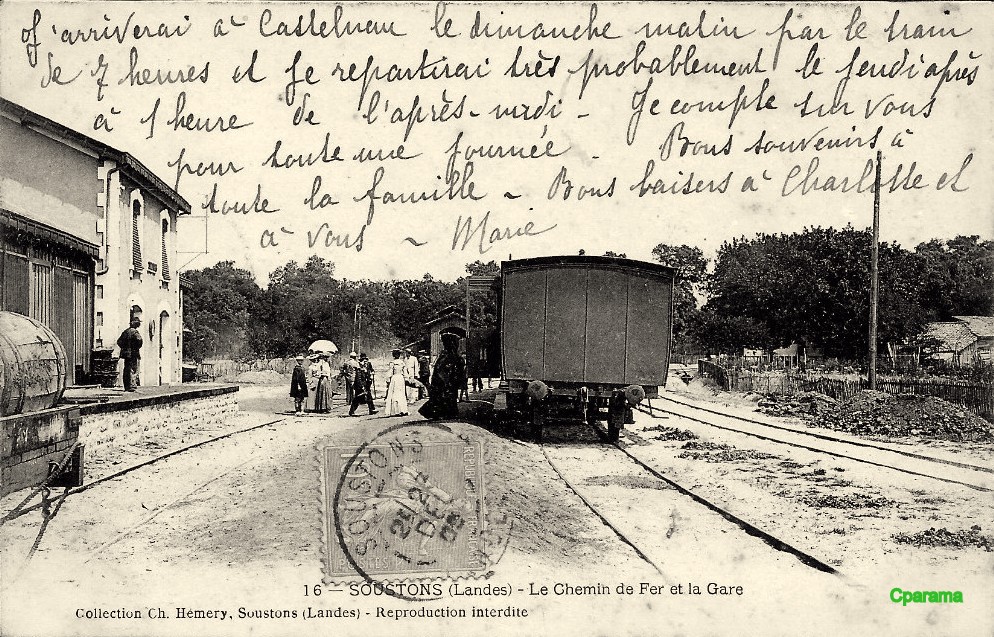 J'arriverai à Castelnau le dimanche matin par le train
de 7 heures et je repartirai très probablement le jeudi après
à 1 heure de l'après-midi - Je compte sur vous
pour toute une journée - Bons souvenirs à
toute la famille - Bons baisers à Charlotte et
à vous - Marie
SOUSTONS
DEC
16 — SOUSTONS (Landes) - Le Chemin de Fer et la Gare
Collection Ch. Hémery, Soustons (Landes) - Reproduction interdite
Cparama